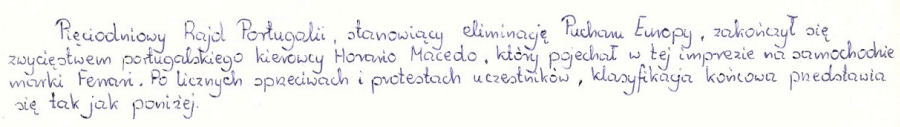 Pięciodniowy Rajd Portugalii, stanowiący eliminację Pucharu Europy, zakończył się
zwycięstwem portugalskiego kierowcy Horario Macedo, który pojechał w tej imprezie na samochodzie
marki Ferrari. Po licznych sprzeciwach i protestach uczestników, klasyfikacja końcowa przedstawia
się tak jak poniżej.